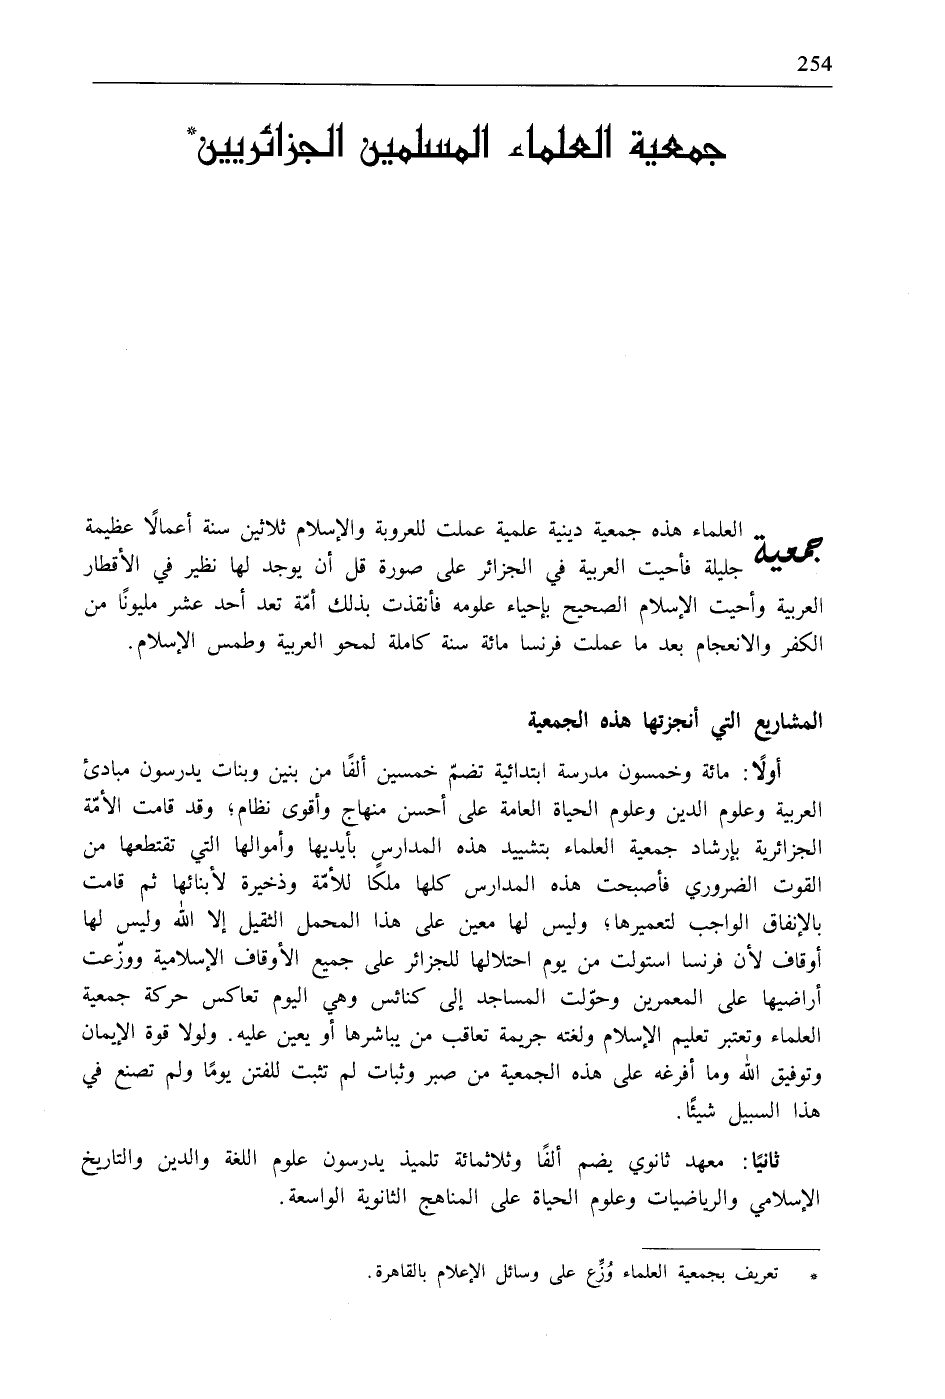 254
جمعية العلماء المسلمين الجزائريين*
جمعية العلماء هذه جمعية دينية علمية عملت للعروبة والإسلام ثلاثين سنة أعمالًا عظيمة
جليلة فأحيت العربية في الجزائر على صورة قل أن يوجد لها نظير في الأقطار
العربية وأحيت الإسلام الصحيح بإحياء علومه فأنقذت بذلك أمّة تعد أحد عشر مليونًا من
الكفر والانعجام بعد ما عملت فرنسا مائة سنة كاملة لمحو العربية وطمس الإسلام.
المشاريع التي أنجزتها هذه الجمعية
أولًا: مائة وخمسون مدرسة ابتدائية تضمّ خمسين ألفًا من بنين وبنات يدرسون مبادئ
العربية وعلوم الدين وعلوم الحياة العامة على أحسن منهاج وأقوى نظام؛ وقد قامت الأمّة
الجزائرية بإرشاد جمعية العلماء بتشييد هذه المدارس بأيديها وأموالها التي تقتطعها من
القوت الضروري فأصبحت هذه المدارس كلها ملكًا للأمّة وذخيرة لأبنائها ثم قامت
بالإنفاق الواجب لتعميرها؛ وليس لها معين على هذا المحمل الثقيل إلا الله وليس لها
أوقاف لأن فرنسا استولت من يوم احتلالها للجزائر على جميع الأوقاف الإسلامية ووزّعت
أراضيها على المعمرين وحوّلت المساجد إلى كنائس وهي اليوم تعاكس حركة جمعية
العلماء وتعتبر تعليم الإسلام ولغته جريمة تعاقب من يباشرها أو يعين عليه. ولولا قوة الإيمان
وتوفيق الله وما أفرغه على هذه الجمعية من صبر وثبات لم تثبت للفتن يومًا ولم تصنع في
هذا السبيل شيئًا.
ثانيًا: معهد ثانوي يضم ألفًا وثلاثمائة تلميذ يدرسون علوم اللغة والدين والتاريخ
الإسلامي والرياضيات وعلوم الحياة على المناهج الثانوية الواسعة.
* تعريف بجمعية العلماء وُزِّع على وسائل الإعلام بالقاهرة.